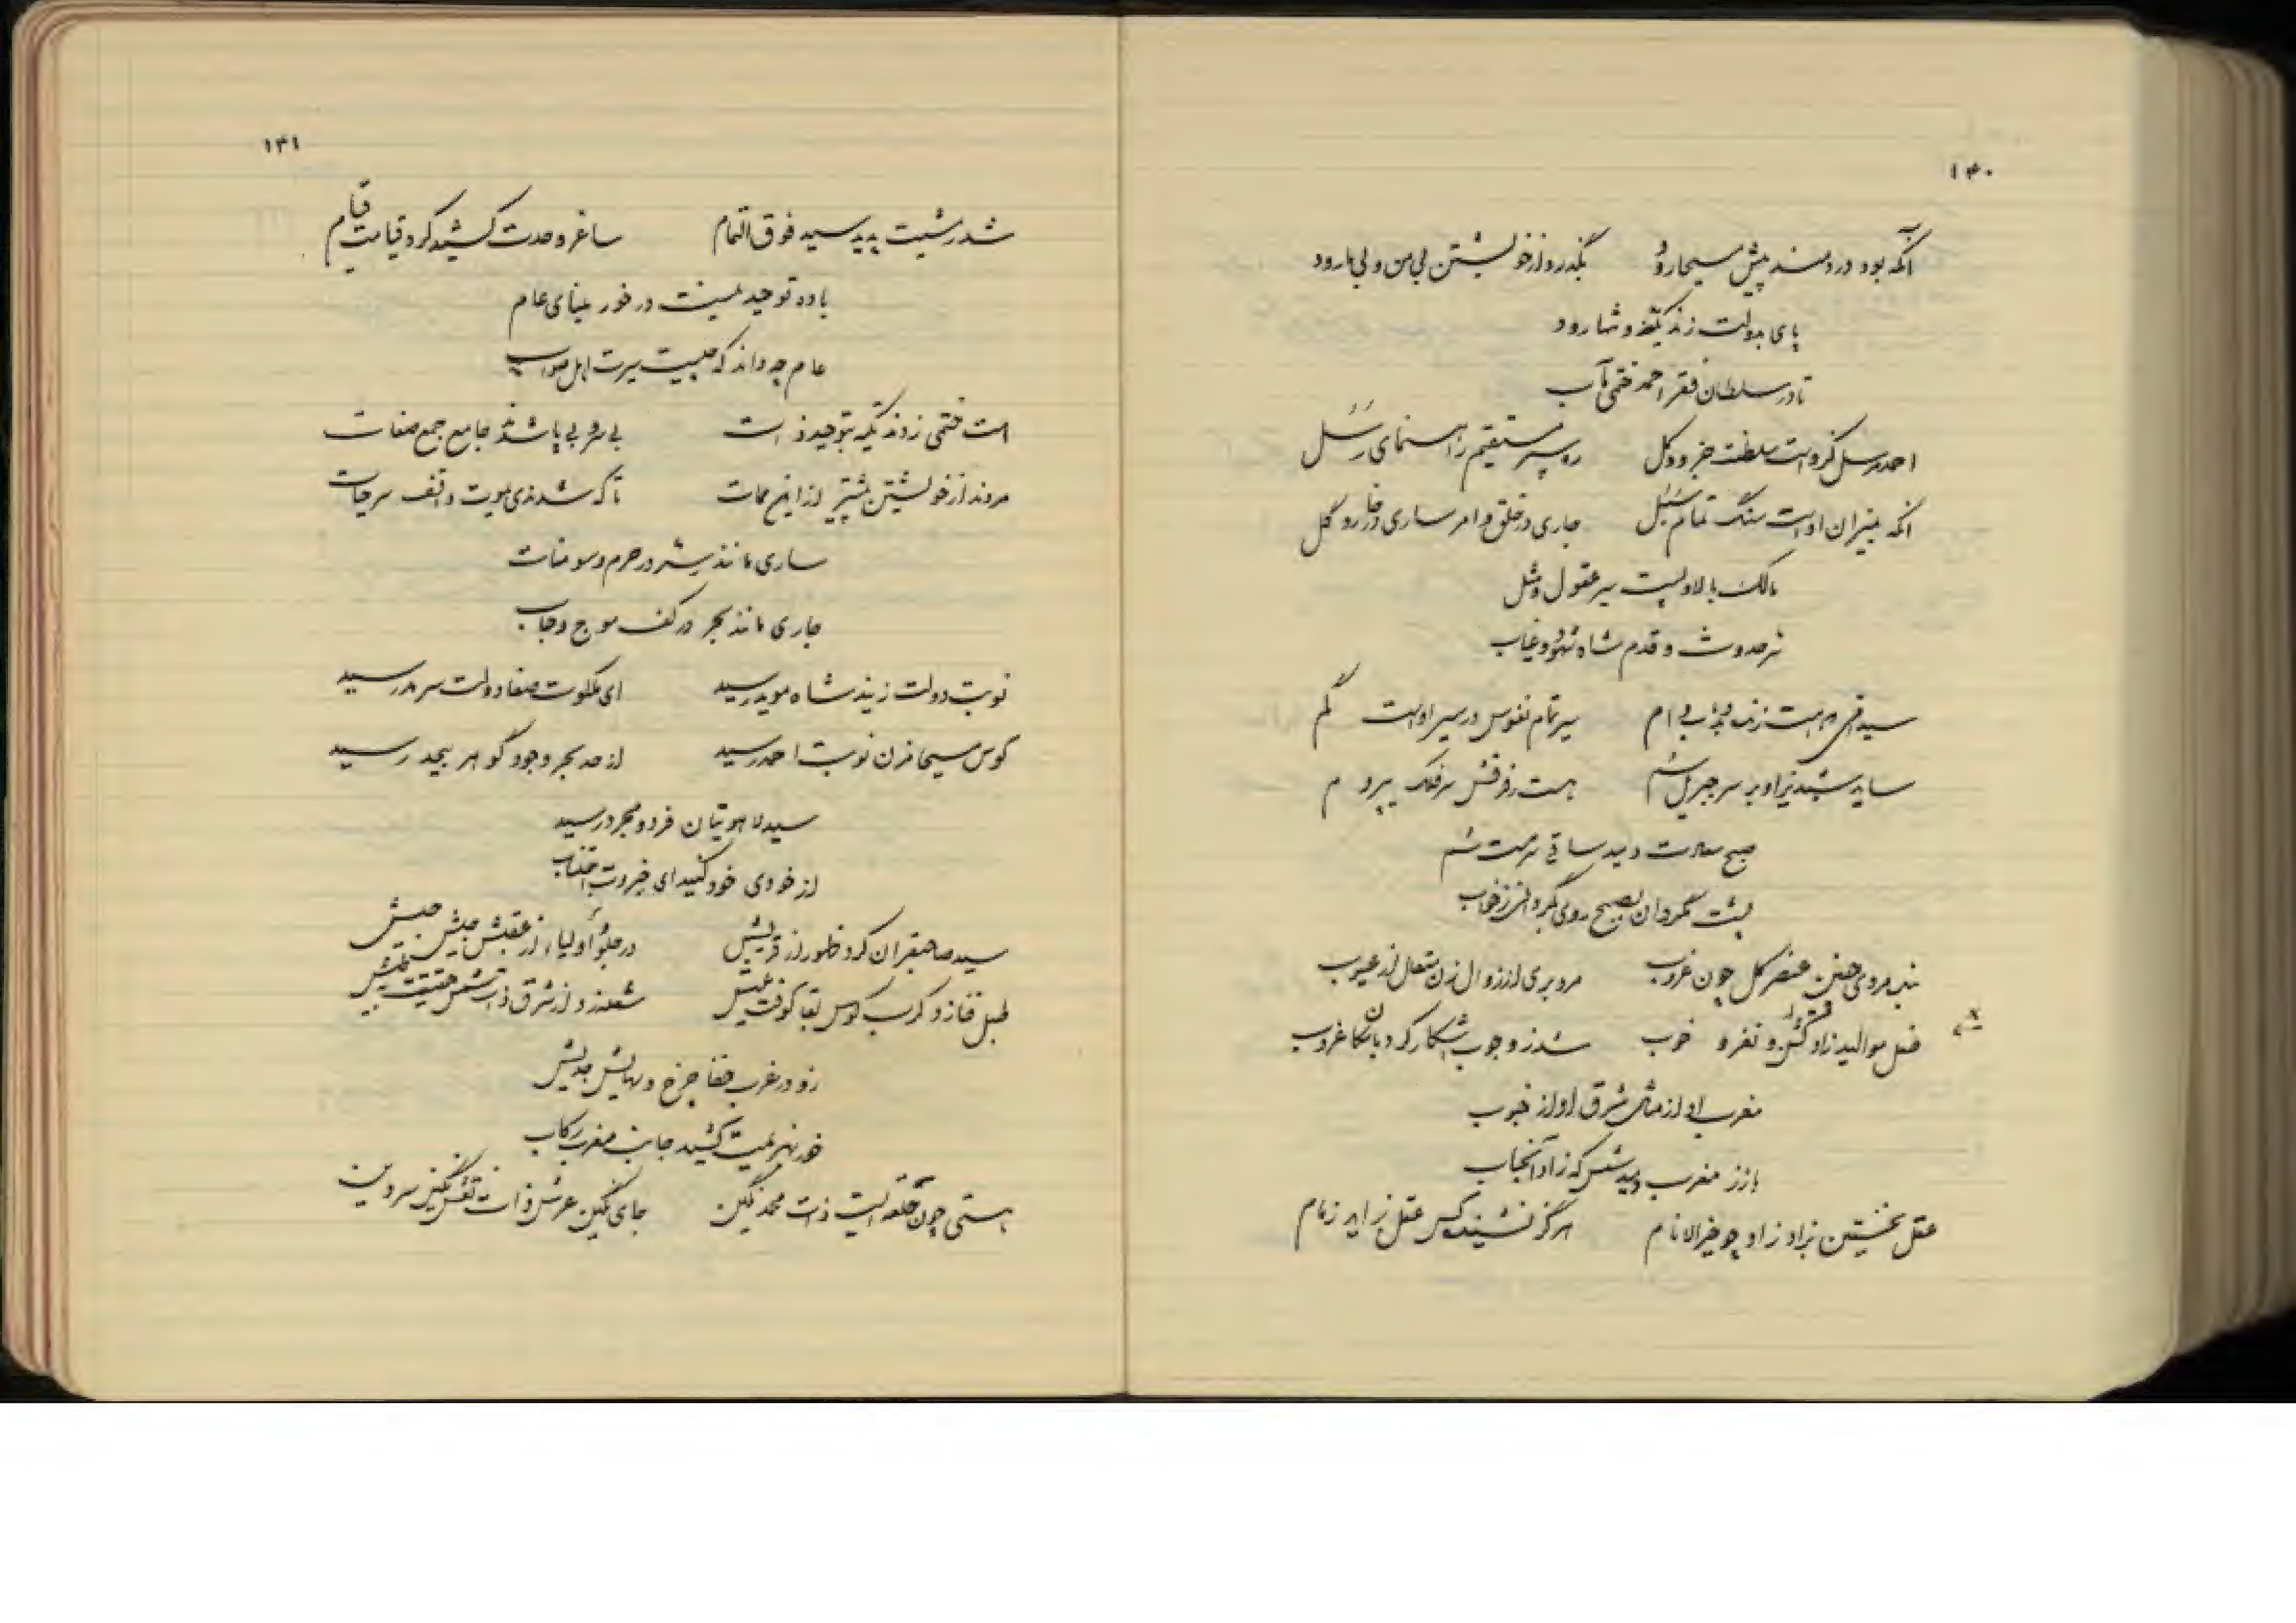 ۱۴۰
انکه بود دردمند پیش مسیحا رود بگذرد از خویشتن بی من و بی ما رود
پای بدولت زند و شما رود
تا در سلطان فقر احمد ختمی مآب
احمد مرسل کزوست سلطنت جزو و کل ره سپر مستقیم راهنمای رسل
انکه بمیزان اوست سنگ تمام سبل جاری در خلق و امر ساری در خار و گل
مالک بالا و پست سر عقول و مثل
سر حدوث و قدم شاه شهود و غیاب
سید امی سیر تمام نفوس در سیر اوست گم
سایه شبدیز او بر سر جبریل سم هست ز وقتش فلک پیرو
صبح سعادت دمید ساقی سرمست
پشت مگردان بصبح روی مگردان ز
عنصر کل چون غروب مرد بری از زوال زن متعال از عیوب
فصل موالید زاد و نغز و خوب شد ز وجوب آشکار کرد بامکان غروب
مغرب او از شمال شرق او از جنوب
باز ز مغرب دمید شمس که زاد آنجناب
عقل نخستین نزاد زاد چو خیر الانام هرگز نشنید کس عقل بزاید ز مام
۱۴۱
شد ز مشیت پدید سید فوق التمام ساغر وحدت کشید کرد قیامت قیام
باده توحید نیست در خور مینای عام
عام چه داند که چیست سیرت اهل صواب
امت ختمی زدند تکیه بتوحید ذات بی سر و بی پا شدند جامع جمع صفات
مردند از خویشتن پیشتر از این ممات تا که شدندی بموت واقف سر حیات
ساری مانند سر در حرم و سومنات
جاری مانند بحر در کف موج و حباب
نوبت دولت زنید شاه موید رسید ای ملکوت صفا دولت سرمد رسید
کوس مسیحا مزن نوبت احمد رسید از مد بحر وجود گوهر بیحد رسید
سید لاهوتیان فرد و مجرد رسید
از خودی خود کنید ای جبروت اجتناب
سید صاحبقران کرد ظهور از قریش در جلو اولیاء از عقبش جیش جیش
طبل فنا زد و کرب کوس بقا کوفت عیش شعله زد از شرق ذات شمس حقیقت
زد در غرب خفا چرخ
خور بهزیمت کشید جانب مغرب رکاب
هستی چون حلقه ایست ذات محمد نگین جای نگین عرش ذات نقش نگین سر دین